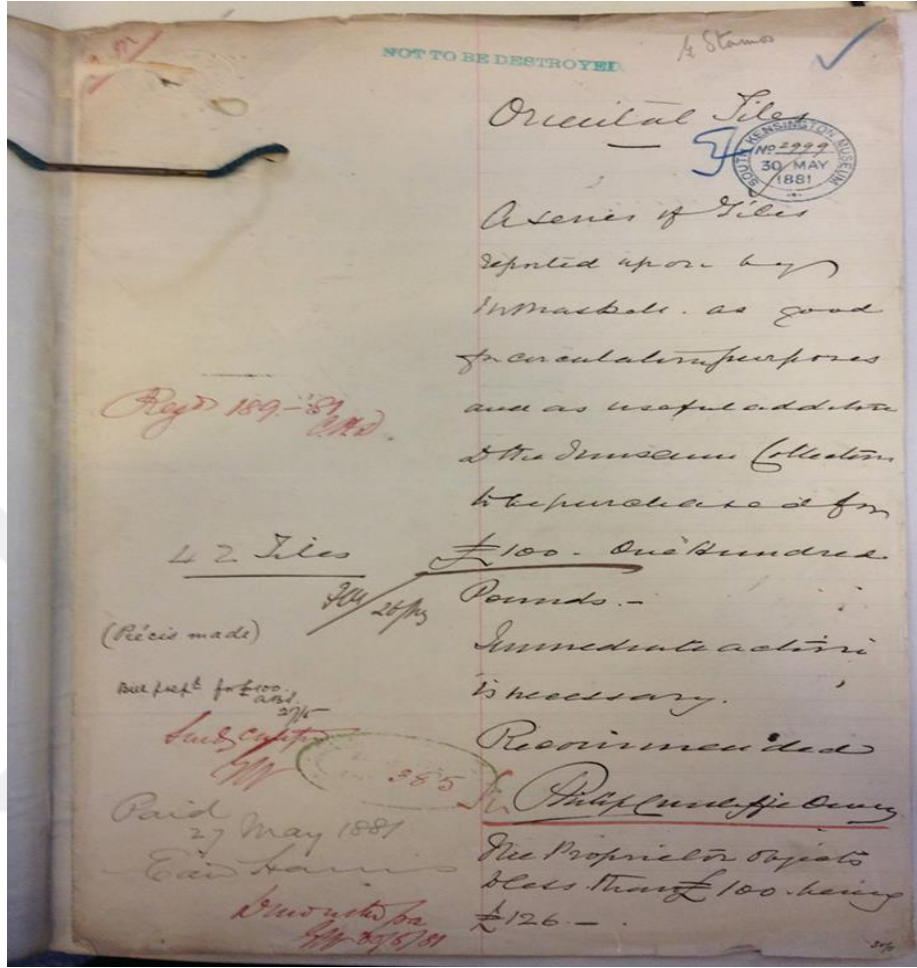 NOT TO BE DESTROYED
Oriental Tiles
SOUTH KENSINGTON MUSEUM
No 2999
30 MAY
1881
A series of Tiles
reported upon by
as good
for circulation purposes
and as useful addition
to the Museum Collection
to be purchased for
£100 - One Hundred
Pounds. -
Immediate action
is necessary.
Recommended
Philip Cunliffe Owen
The Proprietor objects
to less than £100. being
£126 -
Regd 189.-'81
42 Tiles
(Précis made)
Bill prepd for £100.
27/5
385
Paid
27 May 1881